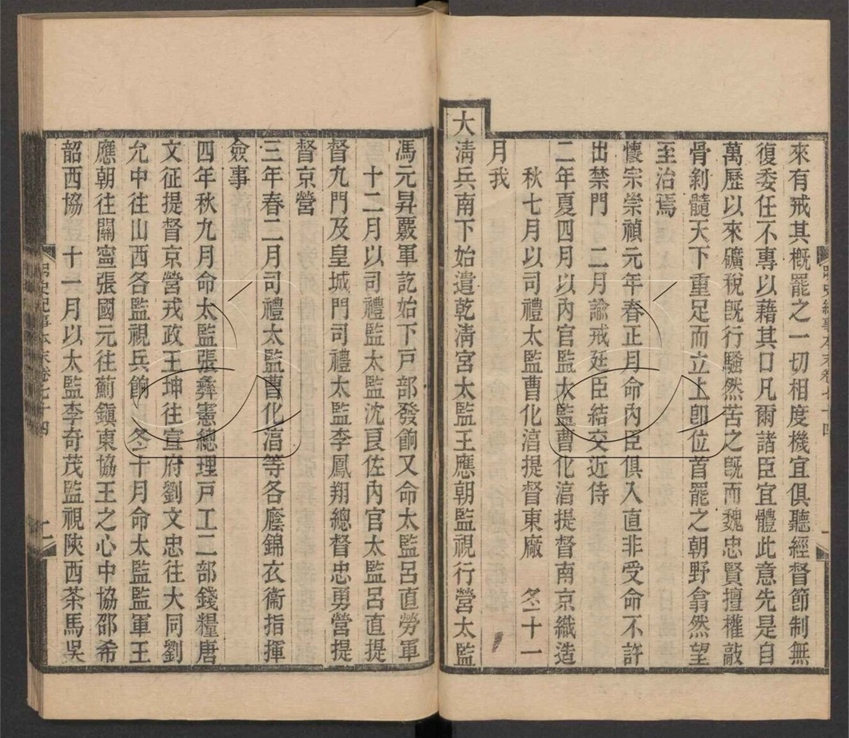 來有戒其概罷之一切相度機宜俱聽經督節制無
復委任不專以藉其口凡爾諸臣宜體此意先是自
萬歷以來礦稅旣行騷然苦之旣而魏忠賢擅權敲
骨剝髓天下重足而立上卽位首罷之朝野翕然望
至治焉
懷宗崇禎元年春正月命內臣俱入直非受命不許
出禁門　二月諭戒廷臣結交近侍
二年夏四月以內官監太監曹化淳提督南京織造
秋七月以司禮太監曹化淳提督東廠　冬十一
月我
大淸兵南下始遣乾淸宮太監王應朝監視行營太監
馮元昇覈軍訖始下戸部發餉又命太監呂直勞軍
十二月以司禮監太監沈良佐內官太監呂直提
督九門及皇城門司禮太監李鳳翔總督忠勇營提
督京營
三年春二月司禮太監曹化淳等各廕錦衣衞指揮
僉事
四年秋九月命太監張彝憲總理戸工二部錢糧唐
文征提督京營戎政王坤往宣府劉文忠往大同劉
允中往山西各監視兵餉　冬十月命太監監軍王
應朝往關寧張國元往薊鎭東協王之心中協邵希
韶西協　十一月以太監李奇茂監視陝西茶馬吳
明史紀事本末卷七十四